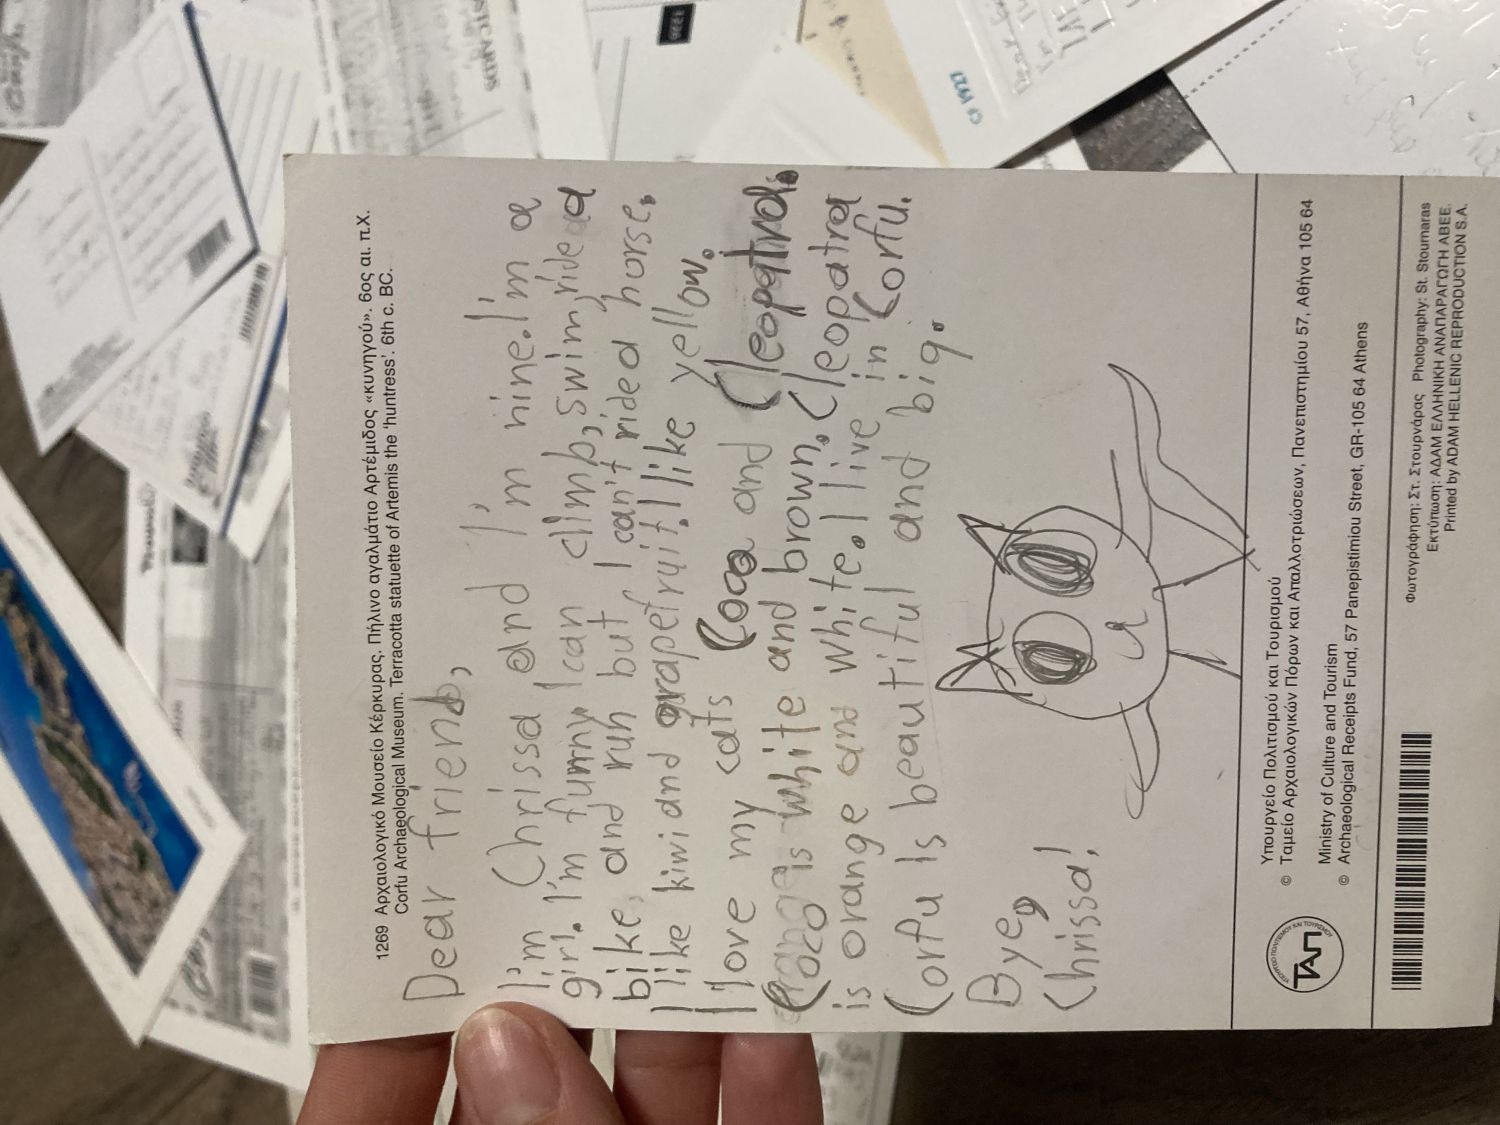 1269 Αρχαιολογικό Μουσείο Κέρκυρας. Πήλινο αγαλμάτιο Αρτέμιδος «κυνηγού». 6ος αι. π.Χ.
Corfu Archaeological Museum. Terracotta statuette of Artemis the 'huntress'. 6th c. BC.
Dear friend,
I'm Chrissa and I'm nine. I'm a
girl. I'm funny. I can climb, swim, ride a
bike, and run but I can't ride a horse.
I like kiwi and grapefruit. I like yellow.
I love my cats Coco and Cleopatra.
Coco is white and brown. Cleopatra
is orange and white. I live in Corfu.
Corfu is beautiful and big.
Bye,
Chrissa!
ΥΠΟΥΡΓΕΙΟ ΠΟΛΙΤΙΣΜΟΥ ΚΑΙ ΤΟΥΡΙΣΜΟΥ
ΤΑΠ
Υπουργείο Πολιτισμού και Τουρισμού
© Ταμείο Αρχαιολογικών Πόρων και Απαλλοτριώσεων, Πανεπιστημίου 57, Αθήνα 105 64
Ministry of Culture and Tourism
© Archaeological Receipts Fund, 57 Panepistimiou Street, GR-105 64 Athens
Φωτογράφηση: Στ. Στουρνάρας Photography: St. Stournaras
Εκτύπωση: ΑΔΑΜ ΕΛΛΗΝΙΚΗ ΑΝΑΠΑΡΑΓΩΓΗ ΑΒΕΕ.
Printed by ADAM HELLENIC REPRODUCTION S.A.